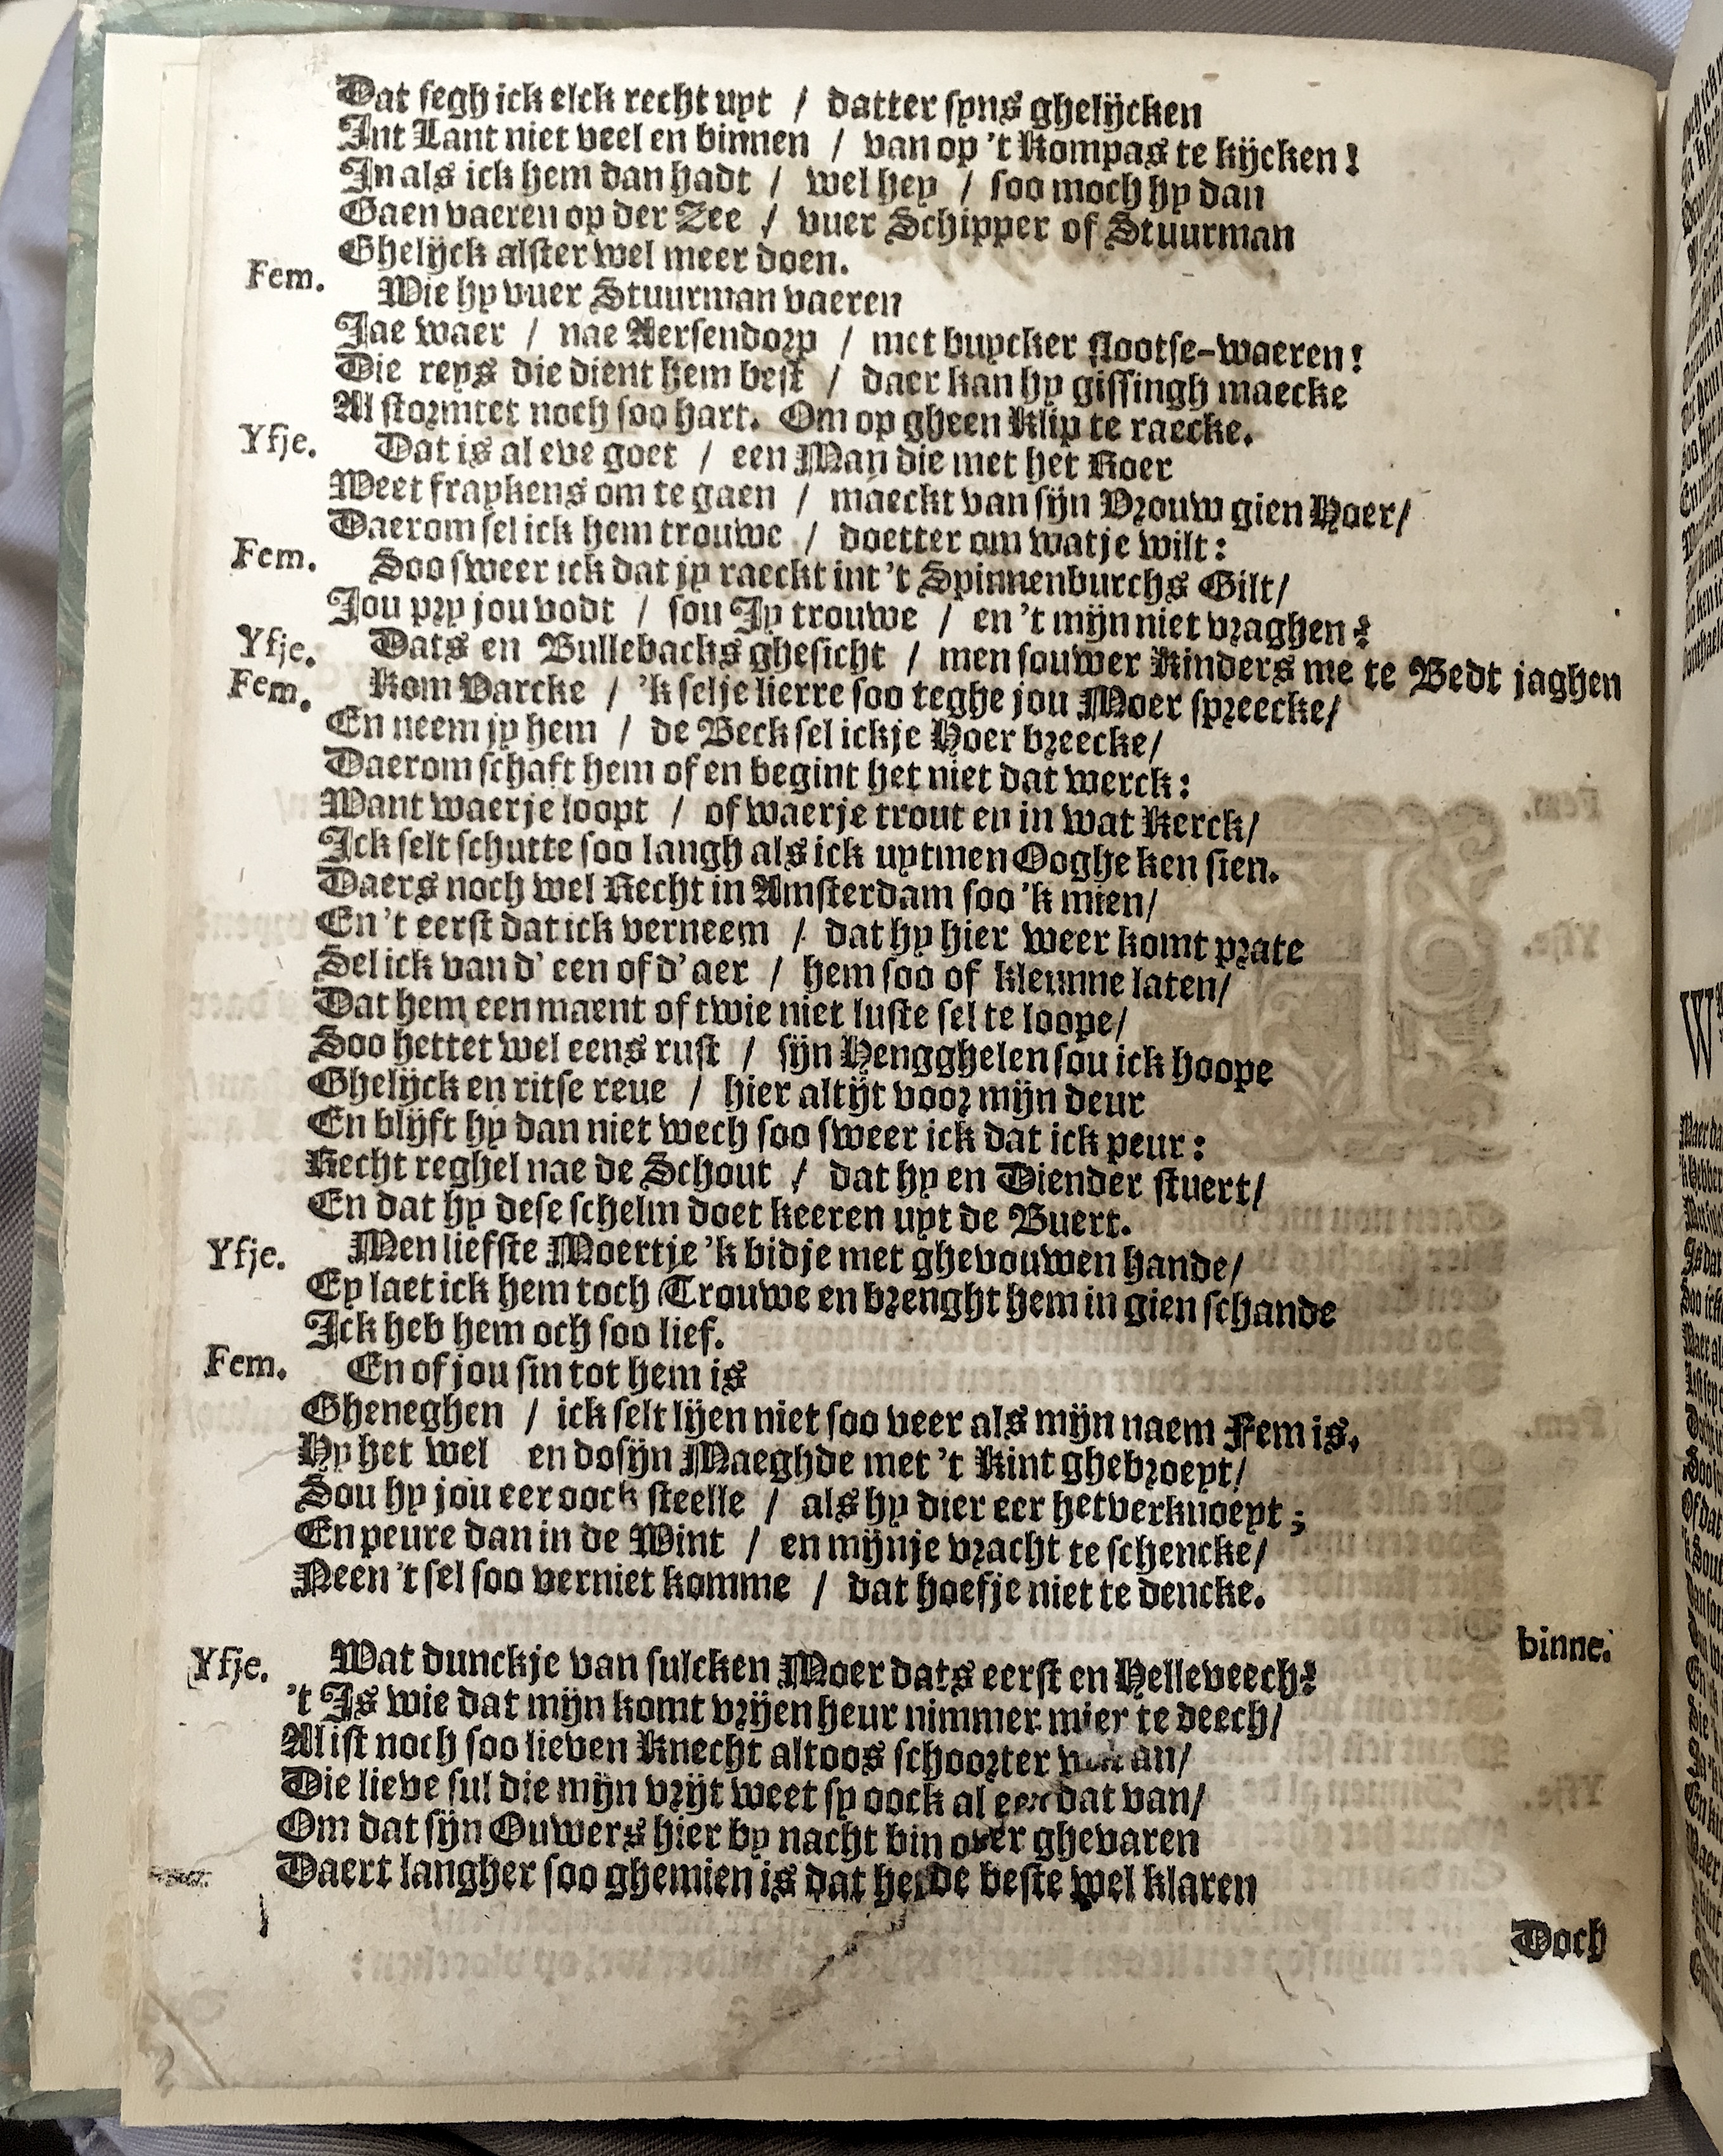 Dat segh ick elck recht uyt / datter syns ghelijcken
Int Lant niet veel en binnen / van op 't Kompas te kijcken!
In als ick hem dan hadt / wel hey / soo moch hy dan
Gaen vaeren op der Zee / vuer Schipper of Stuurman
Ghelijck alster wel meer doen.
Fem. Wie hy vuer Stuurman vaeren
Jae waer / nae Aersendorp / met buycker slootse-waeren!
Die reys die dient hem best / daer kan hy gissingh maecke
Al stormtet noch soo hart. Om op gheen Klip te raecke.
Yfje. Dat is al eve goet / een Man die met het Roer
Weet fraykens om te gaen / maeckt van sijn Vrouw gien Hoer/
Daerom sel ick hem trouwe / doetter om watje wilt:
Fem. Soo sweer ick dat jy raeckt int 't Spinnenburchs Gilt/
Jou pry jou vodt / sou Jy trouwe / en 't mijn niet vraghen?
Yfje. Dats en Bullebacks ghesicht / men souwer Kinders me te Bedt jaghen
Fem. Kom Varcke / 'k selje lierre soo teghe jou Moer spreecke/
En neem jy hem / de Beck sel ickje Hoer breecke/
Daerom schaft hem of en begint het niet dat werck:
Want waerje loopt / of waerje trout en in wat Kerck/
Ick selt schutte soo langh als ick uytmen Ooghe ken sien.
Daers noch wel Recht in Amsterdam soo 'k mien/
En 't eerst dat ick verneem / dat hy hier weer komt prate
Sel ick van d' een of d' aer / hem soo of kleunne laten/
Dat hem een maent of twie niet luste sel te loope/
Soo hettet wel eens rust / sijn Hengghelen sou ick hoope
Ghelijck en ritse reue / hier altijt voor mijn deur
En blijft hy dan niet wech soo sweer ick dat ick peur:
Recht reghel nae de Schout / dat hy en Diender stuert/
En dat hy dese schelm doet keeren uyt de Buert.
Yfje. Men liefste Moertje 'k bidje met ghevouwen hande/
Ey laet ick hem toch Trouwe en brenght hem in gien schande
Ick heb hem och soo lief.
Fem. En of jou sin tot hem is
Gheneghen / ick selt lijen niet soo veer als mijn naem Fem is,
Hy het wel en dosijn Maeghde met 't Kint ghebroeyt/
Sou hy jou eer oock steelle / als hy dier eer het verknoeyt;
En peure dan in de Wint / en mijnje vracht te schencke/
Neen 't sel soo verniet komme / dat hoefje niet te dencke.
binne.
Yfje. Wat dunckje van sulcken Moer dats eerst en Helleveech?
't Is wie dat mijn komt vrijen heur nimmer mier te deech/
Al ist noch soo lieven Knecht altoos schoorter an/
Die lieve sul die mijn vrijt weet sy oock al dat van/
Om dat sijn Ouwers hier by nacht bin over ghevaren
Daert langher soo ghemien is dat het de beste wel klaren
Doch